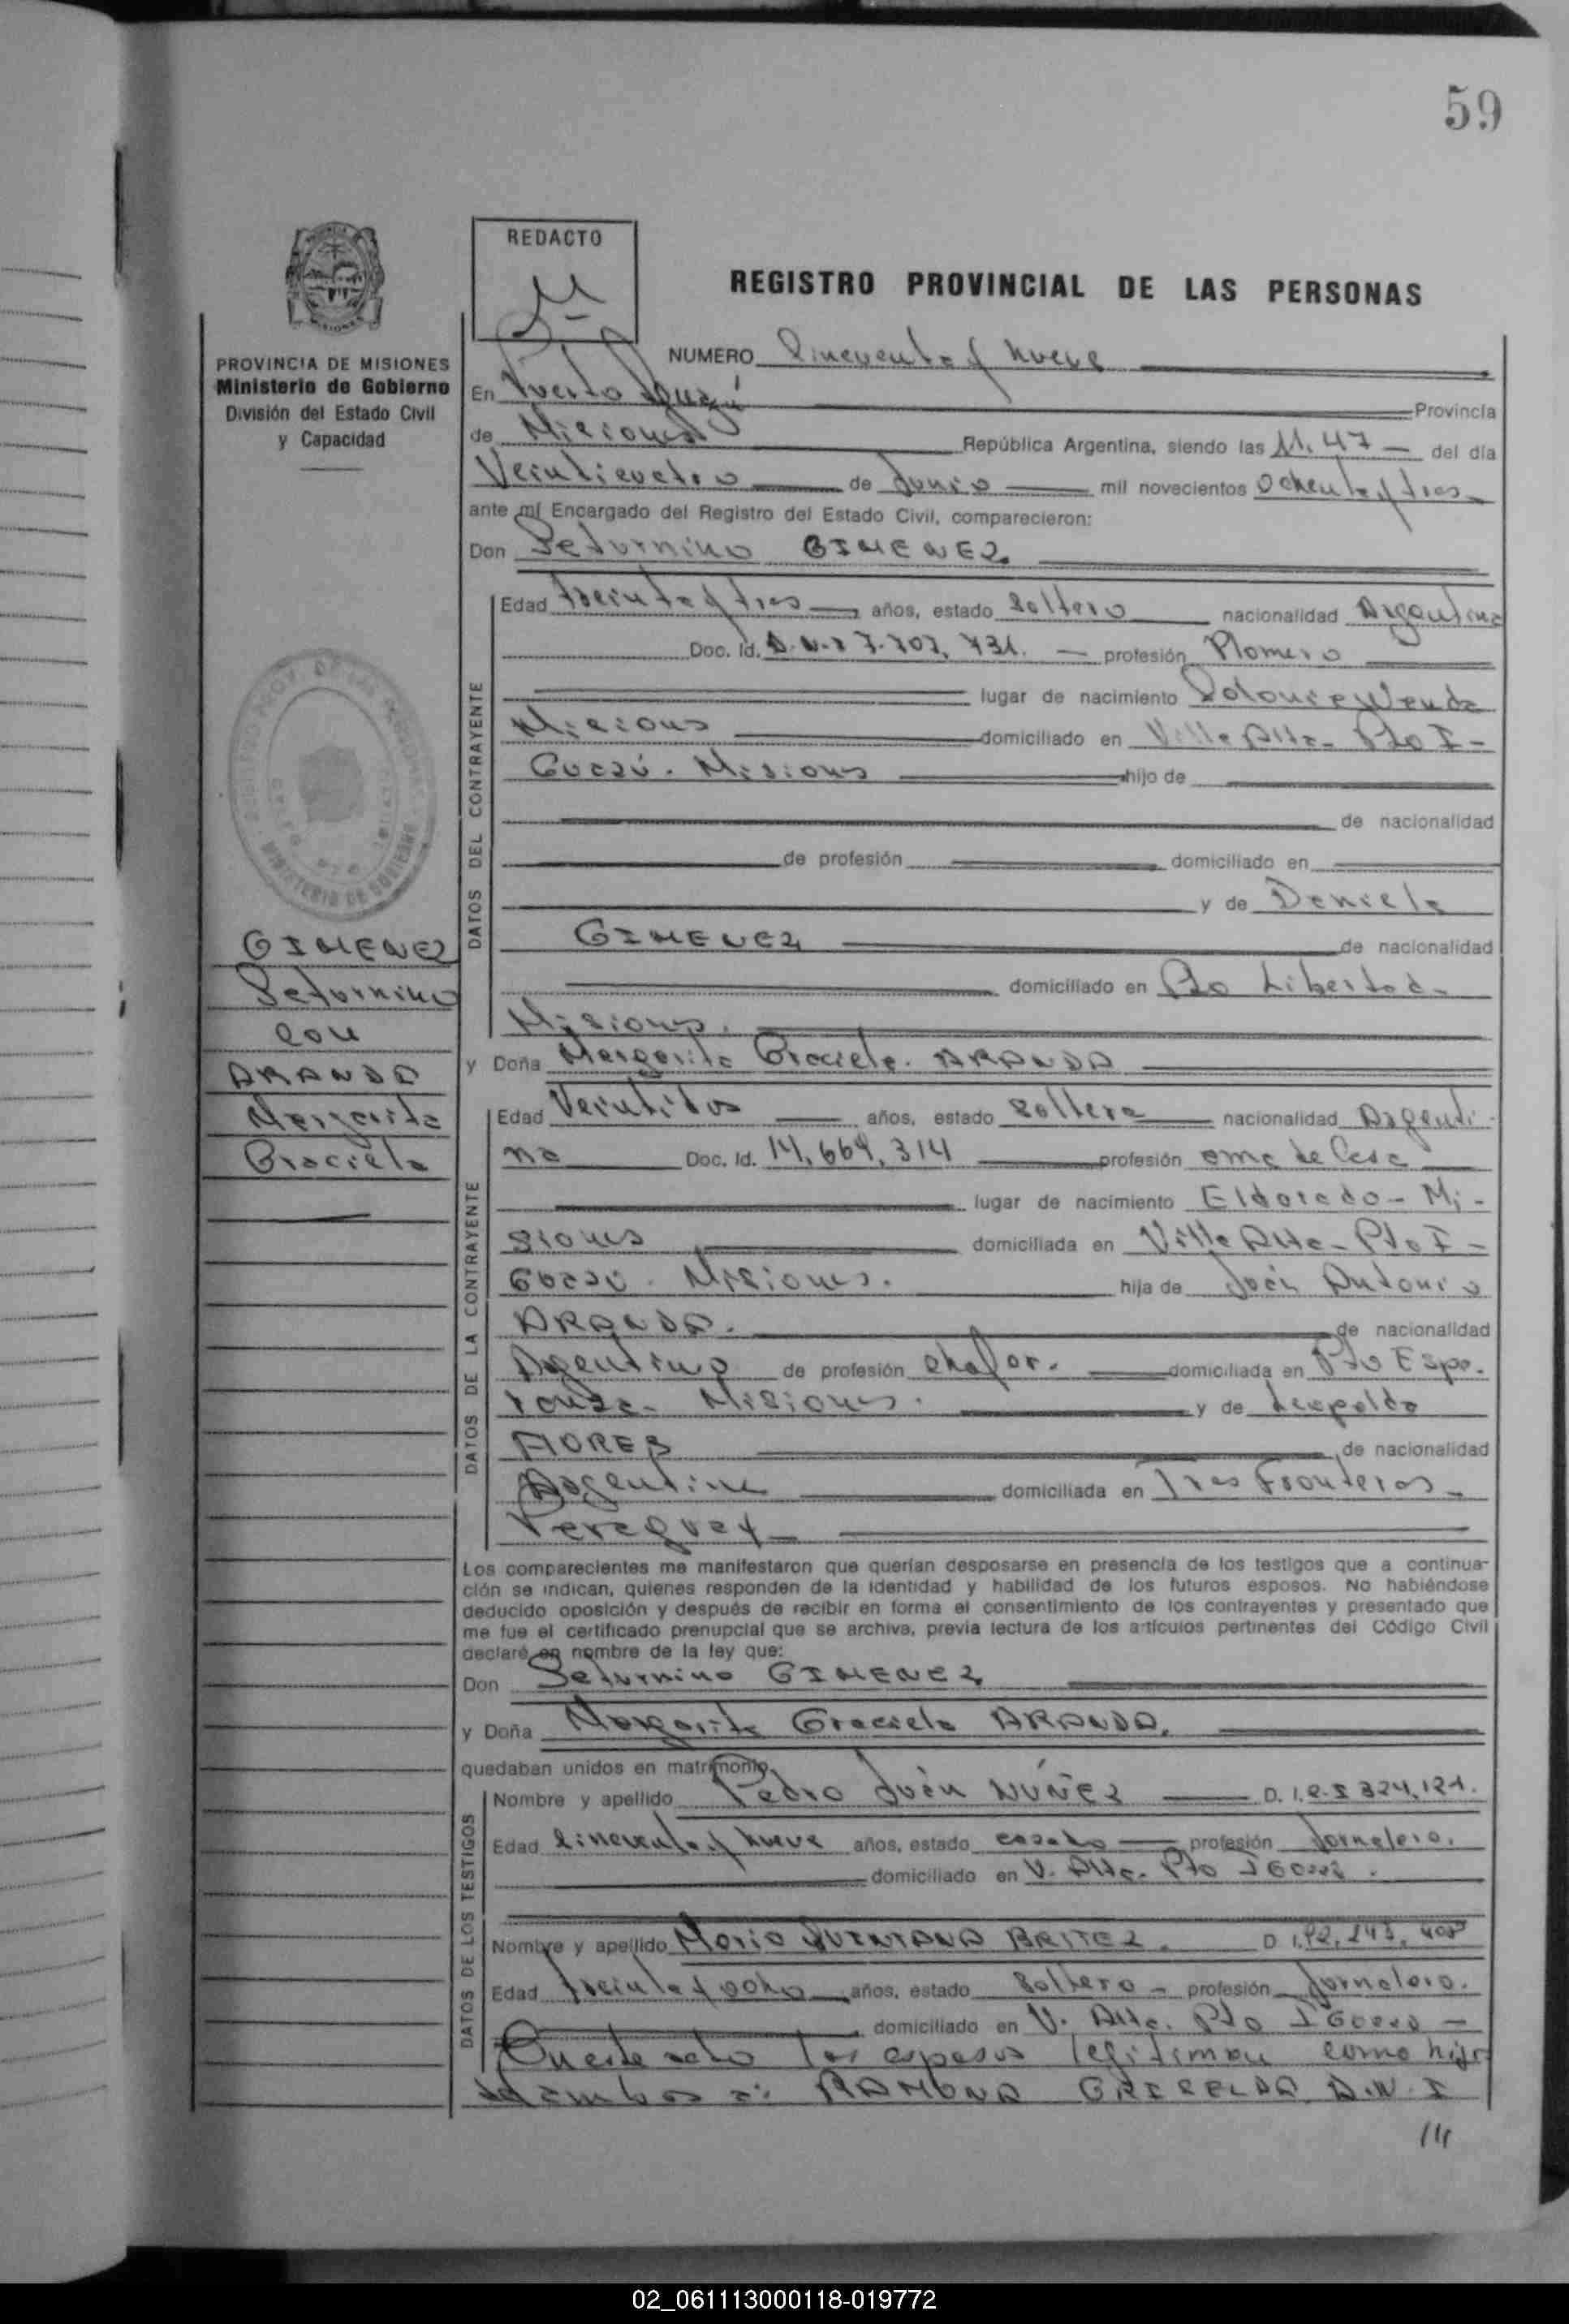 59
REDACTO
REGISTRO PROVINCIAL DE LAS PERSONAS
PROVINCIA DE MISIONES
Ministerio de Gobierno
División del Estado Civil
y Capacidad
NUMERO Cincuenta y nueve
En Puerto Iguazú Provincia
de Misiones República Argentina, siendo las 11.47 del día
Veinticuatro de Junio mil novecientos Ochenta y tres
ante mí Encargado del Registro del Estado Civil, comparecieron:
Don Saturnino GIMENEZ
DATOS DEL CONTRAYENTE
Edad treinta y tres años, estado Soltero nacionalidad Argentina
Doc. Id. profesión Plomero
lugar de nacimiento Colonia Wanda
Misiones domiciliado en Villa Alta - Pto I-
Guazú. Misiones hijo de
de nacionalidad
de profesión domiciliado en
y de Daniela
GIMENEZ de nacionalidad
domiciliado en Pto Libertad-
Misiones.
GIMENEZ
Saturnino
con
ARANDA
Margarita
Graciela
y Doña Margarita Graciela. ARANDA
DATOS DE LA CONTRAYENTE
Edad Veintidos años, estado Soltera nacionalidad Argenti-
na Doc. Id. 14.664.314 profesión ama de Casa
lugar de nacimiento Eldorado - Mi-
siones domiciliada en Villa Alta - Pto I-
Guazú. Misiones. hija de Antonio
ARANDA. de nacionalidad
Argentino de profesión chofor. domiciliada en Pto Espe-
ranza- Misiones. y de Leopolda
FLORES de nacionalidad
Argentina domiciliada en Tres Fronteras-
Paraguay
Los comparecientes me manifestaron que querían desposarse en presencia de los testigos que a continua-
ción se indican, quienes responden de la identidad y habilidad de los futuros esposos. No habiéndose
deducido oposición y después de recibir en forma el consentimiento de los contrayentes y presentado que
me fue el certificado prenupcial que se archiva, previa lectura de los artículos pertinentes del Código Civil
declaré en nombre de la ley que:
Don Saturnino GIMENEZ
y Doña Margarita Graciela ARANDA.
quedaban unidos en matrimonio.
DATOS DE LOS TESTIGOS
Nombre y apellido Pedro Juan NUÑEZ D. I.
Edad Cincuenta y nueve años, estado casado profesión Jornalero.
domiciliado en V. Alta. Pto IGuazú.
Nombre y apellido Mario QUINTANA BRITEZ. D I.
Edad treinta y ocho años, estado Soltero - profesión Jornalero.
domiciliado en V. Alta. Pto IGuazú -
En este acto los esposos legitiman como hijo
de ambos a: RAMONA GRISELDA D.N.I
///
02_061113000118-019772